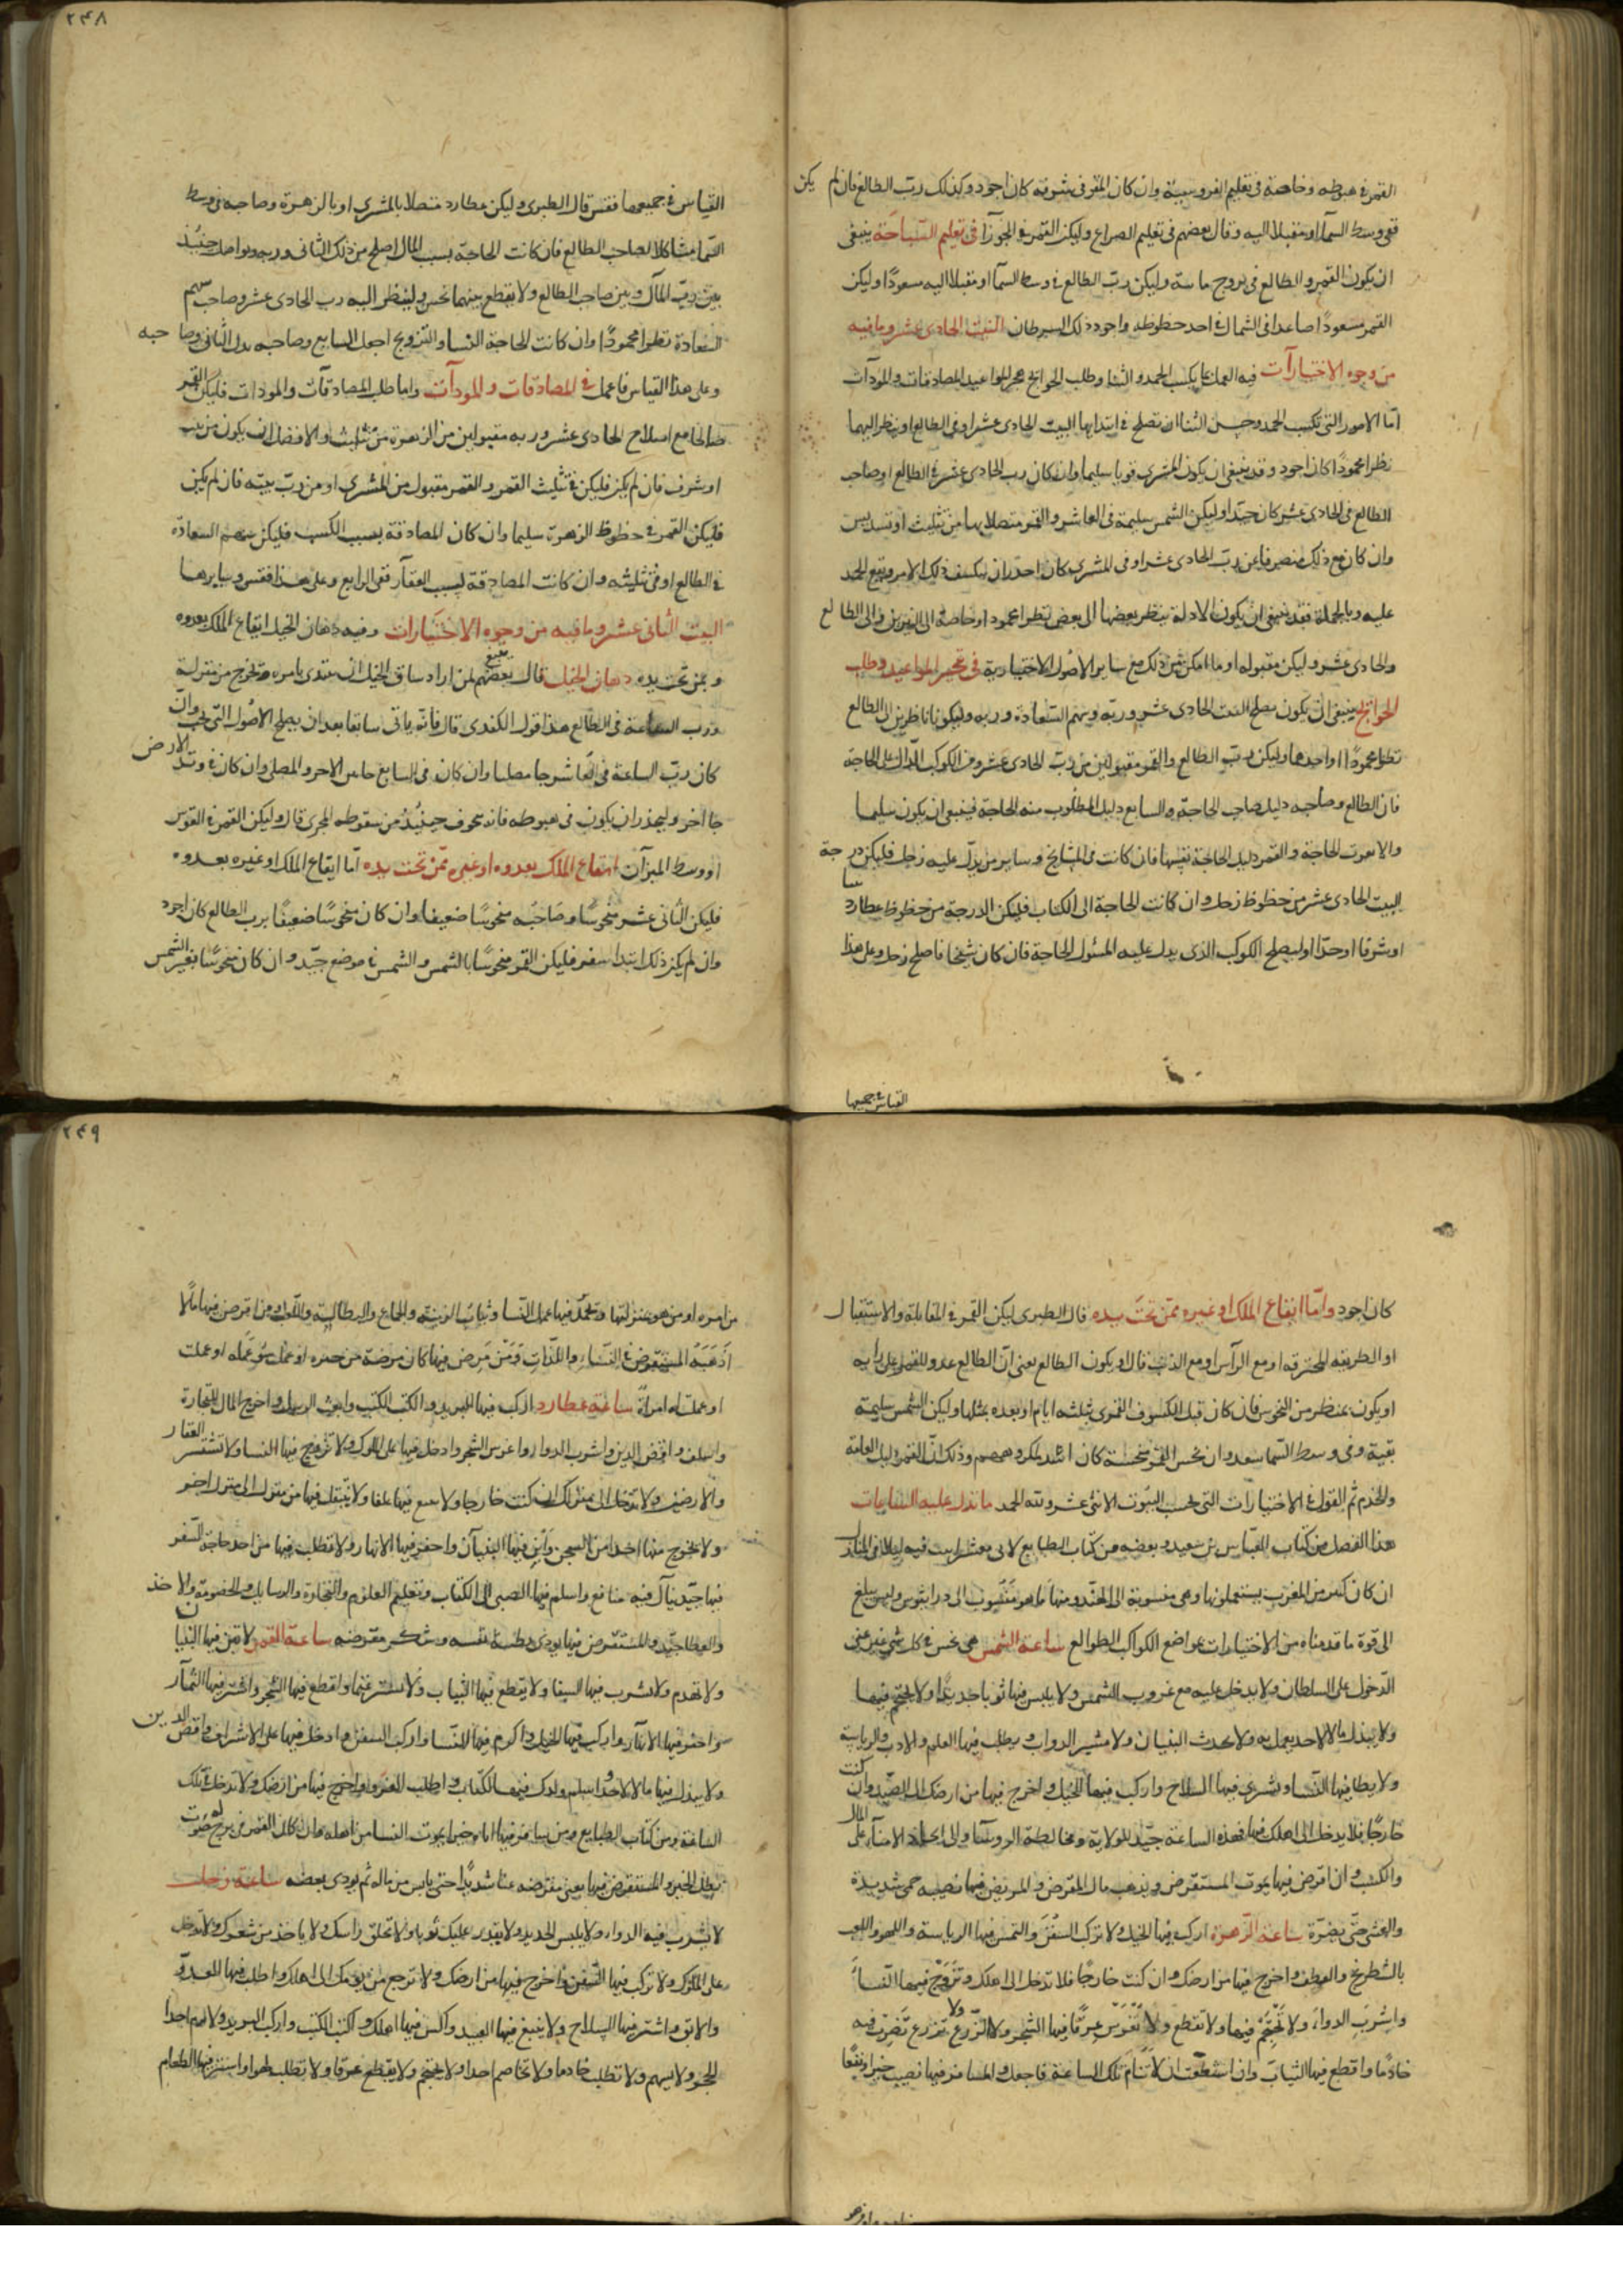 القمر في هبوطه وخاصة في تعليم الفروسية وان كان القمر في شرفه كان اجود وكذلك رب الطالع فان لم يكن
ففي وسط السماء او مقبلا اليه وقال بعضهم في تعليم الصراع وليكن القمر في الجوزآ في تعليم السباحة ينبغي
ان يكون القمر والطالع في بروج مايية وليكن رب الطالع في وسط السمآ او مقبلا اليه مسعودًا وليكن
القمر مسعودًا صاعدا في الشمال في احد حظوظه واجود ذلك السرطان البيت الحادى عشر وما فيه
من وجوه الاختيارآت فيه العمل على كسب الحمد والثنا وطلب الحوائج المواعيد المصادقات والمودآت
امّا الامور التي تكسب الحمد وحسن الثنا ان تصلح في ابتدايها البيت الحادى عشر او في الطالع او ينظر اليهما
نظرا محمودًا كان اجود وقد ينبغي ان يكون المشترى قويا سليما وان كان رب الحادى عشر في الطالع او صاحب
الطالع في الحادى عشر كان جيّدا وليكن الشمس سليمة في العاشر والقمر متصلا بها من تثليث او تسديس
وان كان مع ذلك منصرفا عن رب الحادى عشر او في المشترى كان احدر ان ينكشف ذلك الامر ويقع الحمد
عليه وبالجملة فقد ينبغي ان يكون الادلة ينظر بعضها الى بعض نظرا محمودا وخاصة الى النيرين والى الطالع
والحادى عشر وليكن مقبوله او ما امكن من ذلك مع ساير الاصول الاختيارية في المواعيد وطلب
الحوائج ينبغي ان يكون يصلح البيت الحادى عشر وربه وسهم السّعادة وربه وليكونا ناظرين الى الطالع
نظرا محمودًا او احدهما وليكن رب الطالع والقمر مقبولين من رب الحادى عشر ومن الكوكب الدّال على الحاجة
فان الطالع وصاحبه دليل صاحب الحاجة والسابع دليل المطلوب منه الحاجة فينبغي ان يكون سليما
القمر دليل الحاجة نفسها فان كانت في المشايخ وساير من يدلّ عليه زحل فليكن درجة
البيت الحادى عشر من حظوظ زحل وان كانت الحاجة الى الكتاب فليكن الدرجة من حظوظ عطارد
او شرفا او حدّا او ليصلح الكوكب الذى يدل عليه المسئول الحاجة فان كان شيخا فاصلح زحل وعلى هذا
القياس في جميعها
٢٤٨
القياس في جميعها فقس قال الطبرى وليكن عطارد متصلا بالمشترى او بالزهرة وصاحبه في وسط
السّما مشاكلا لصاحب الطالع فان كانت الحاجة بسبب المال اصلح من ذلك الثانى وربه ويواصل حينئذ
بين ربّ المال وبين صاحب الطالع ولا يقطع بينهما نحس ولينظر اليه رب الحادى عشر وصاحب سهم
السعادة نظرا محمودًا وان كانت الحاجة النسا والتزويج اجعل السابع وصاحبه بدل الثانى وصاحبه
وعلى هذا القياس فاعمل في المصادقات والمودآت واما طلب المصادقات والمودات فليكن القمر
صالحا مع اصلاح الحادى عشر وربه مقبولين من الزهرة من تثليث والافضل ان يكون من بيت
او شرف فان لم يكن فليكن في تثليث القمر والقمر مقبول من المشترى او من ربّ بيته فان لم يكن
فليكن القمر في حظوظ الزهرة سليما وان كان المصادقة بسبب الكسب فليكن سهم السعادة
في الطالع او في تثليثه وان كانت المصادقة لسبب العقار ففي الرابع وعلى هذا فقس وسايرها
البيت الثانى عشر وما فيه من وجوه الاختيارات وفيه رهان الخيل ايقاع الملك بعدوه
وبمن تحت يده رهان الخيل قال بعضهم لمن اراد سباق الخيل ان يبتدى بامره ويخرج من منزله
ورب الساعة في الطالع هذا قول الكندى قال فانه ياتى سابقا بعد ان يصلح الاصول التي يجب وان
كان ربّ الساعة في العاشر جا مصليا وان كان في السابع جا بين الاخر والمصلى وان كان في وتد الارض
جا اخر وليحذر ان يكون في هبوطه فانه يخوف حينئذ من سقوطه المجرى قال وليكن القمر في القوس
او وسط الميزآن ايقاع الملك بعدوه او غيره ممّن تحت يده امّا ايقاع الملك او غيره بعدوه
فليكن الثانى عشر منحوسًا وصاحبه منحوسًا ضعيفا وان كان منحوسًا ضعيفًا برب الطالع كان اجود
وان لم يكن ذلك ابتدا سفر فليكن القمر منحوسًا بالشمس والشمس في موضع جيّد وان كان منحوسًا بغير الشمس
كان اجود وامّا ايقاع الملك او غيره ممّن تحت يده قال الطبرى ليكن القمر في المقابلة والاستقبال
او الطريقه المحترقه او مع الرآس او مع الذنب قال او يكون الطالع يعنى انّ الطالع عدو للقمر وعلى رايه
او يكون بمنظر من النحوس فان كان قبل الكسوف القمرى بثلثه ايام او بعده بمثلها وليكن الشمس سليمة
بقية وفي وسط السّما سعد وان نحس القمر كان اشد لمكروههم وذلك انّ القمر دليل العامة
والخدم ثم القول في الاختيارات التي بحسب البيوت الاثنى عشر ولله الحمد ما تدل عليه الساعات
هذا الفصل من كتاب العبّاس بن سعيد وبعضه من كتاب الطبايع لابي معشر
ان كان كثير من المغرب يستعملونها وهي منسوبة الى الهند ومنها ما هو منسوب الى دراينوس وليس يبلغ
الى قوة ما قدمناه من الاختيارات بمواضع الكواكب الطوالع ساعة الشمس هي نحس في كل شي غير
الدّخول على السلطان ولا يدخل عليه مع غروب الشمس ولا يلبس فيها ثوبا جديدًا ولا يحتجم فيها
ولا يبذل مالا لاحد يعمل به ولا يحدث البنيان ولا مشير الدواب ويطلب فيها العلم والادب والرياسة
ولا يطا فيها النّسا ويشرى فيها السلاح واركب فيها الخيل واخرج فيها من ارضك الى الصّيد وان كنت
خارجًا فلا يدخل الى اهلك فيها فهذه الساعة جيّد للولاية ومخالطة الروسآ على المال
والكسب وان اقرض فيها يموت المستقرض ويذهب مال المقرض والمريض فيها تصيبه حمى شديدة
ساعة الزّهرة اركب فيها الخيل ولا تركب السفن والتمس فيها الرياسة واللهو واللعب
بالشطرنج واخرج فيها من ارضك وان كنت خارجًا فلا تدخل الى اهلك وتزوّج فيها النّسآ
واشرب الدواء ولا تحتجم فيها ولا تقطع عرقًا ولا تغرس فيها الشجر ولا الزّرع
خادمًا واقطع فيها الثياب وان استطعت ان لا تنام تلك الساعة فاجعل والمسافر فيها نصيب خيرا ونفعًا
٢٤٩
من امره او من هو بمنزلتها وتحمد فيها عمل النّسا وثياب الزينة والجماع والبطالة واللعب ومن اقرض فيها مالا
اذهبه المستقرض في النساء واللذات ومن مرض فيها كان مرضة من خمر او عمل سوء عمله او عملت
او عملت له امراة ساعة عطارد اركب فيها البريد واكتب الكتب وابعث الرسل واخرج المال للتجارة
واسلف واقض الدين واشرب الدوا واغرس الشجر وادخل فيها على الملوك ولا تزوج فيها النسا ولا تشتر العقار
والارضين ولا تدخل الى منزلك ان كنت خارجا ولا تبع فيها علفا ولا تنتقل فيها من منزل الى منزل اخر
ولا تخرج منها احدا من السجن وابن فيها البنيآن واحفر فيها الانهار ولا تطلب فيها من احد حاجة السفر
فيها جيّد ينال فيه منافع واسلم فيها الصبى الى الكتاب وتعليم العلوم والتجارة والرسايل والخصومة والاخذ
والعطا جيّد والمستقرض فيها يودى بطيب نفسه ويشكر مقرضه ساعة القمر لا تبن فيها البنيان
ولا تهدم ولا تشرب فيها السقيا ولا يقطع فيها الثياب ولا تشتر غنما واقطع فيها الشجر واشتر فيها الثمار
واحفر فيها الآبار واركب فيها الخيل واكرم فيها النّسا واركب السفن وادخل فيها على الاشراف واقض الدين
ولا يبذل فيها مالا لاحد واسلم ولدك فيها الكتاب واطلب الغزو واخرج فيها من ارضك ولا تدخل تلك
الساعة ومن كتاب الطبايع ومن سافر فيها اتاه خبرا بموت النسا من اهله وان كان القمر في برج صوت
يطلب الخير والمستقرض فيها يعنى مقرضه عنا شديدًا حتى يايس من ماله ثم يودى بعضه ساعة زحل
لا يشرب فيه الدواء ولا يلبس الجديد ولا يقدر عليك ثوبا ولا تحلق راسك ولا ياخذ من شعرك ولا تدخل
على الملوك ولا تركب فيها السّفن واخرج فيها من ارضك ولا ترجع من يومك الى اهلك واطلب فيها العدوّ
والابق واشتر فيها السلاح ولا يتبع فيها العبيد واكس فيها اهلك واكتب الكتب واركب البريد ولا احدا
للخير ولا يسهم ولا تطلب خادما ولا تخاصم احدا ولا يحتجم ولا يقطع عرقا ولا تطلب لهوا واشتر فيها الطعام